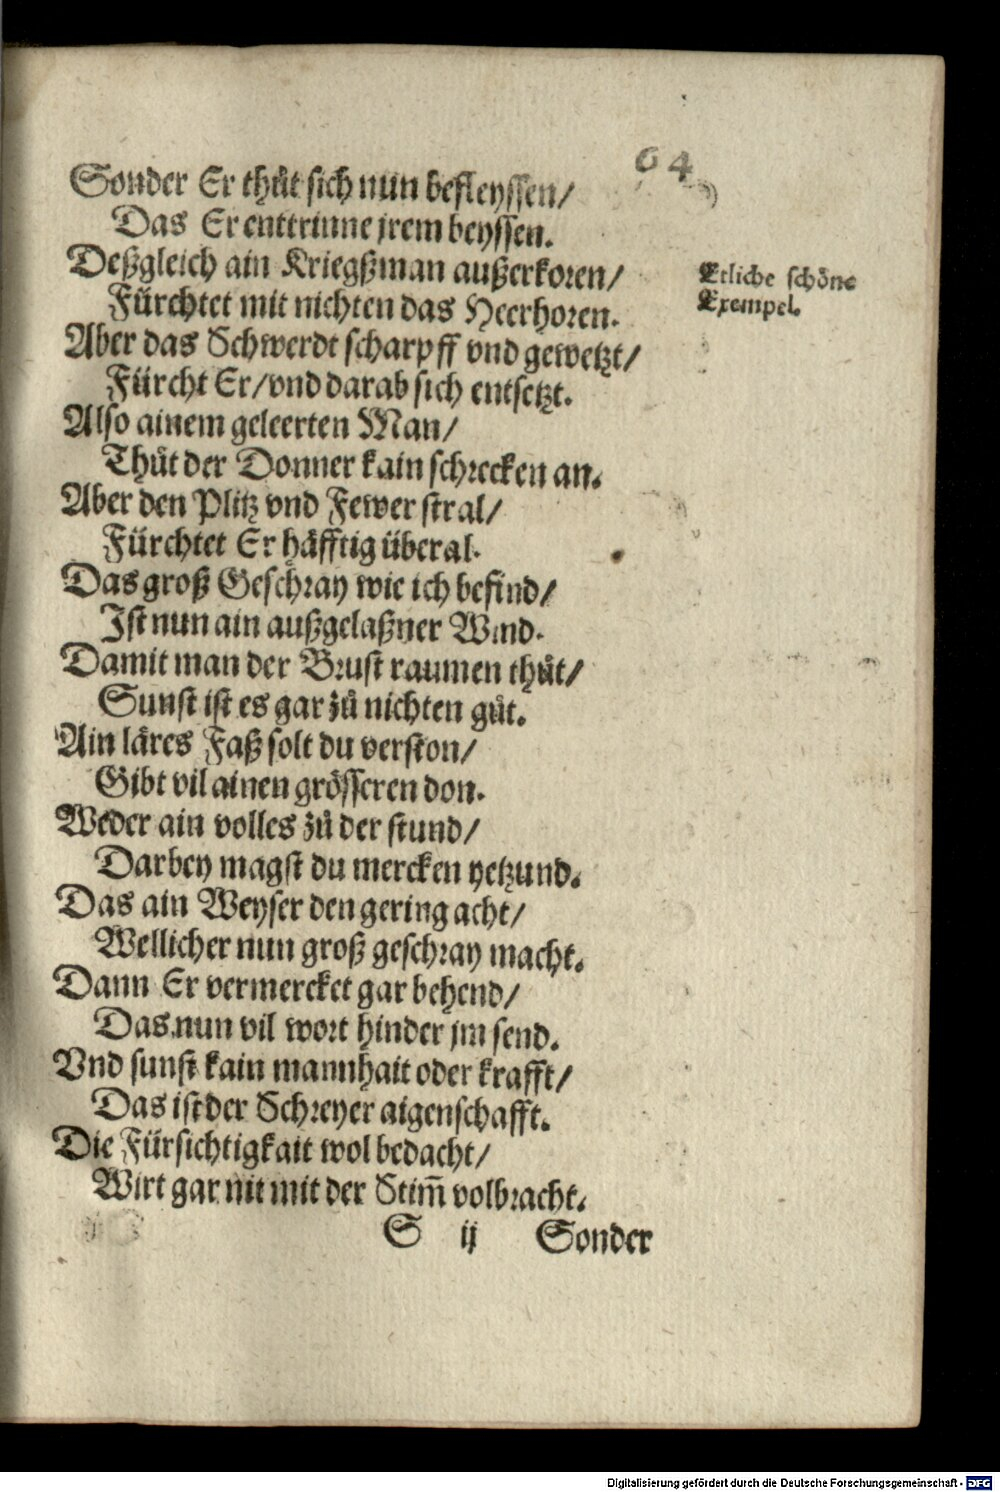 64
Sonder Er thůt sich nun befleyssen/
Das Er enttrinne jrem beyssen.
Deßgleich ain Kriegßman außerkoren/
Fürchtet mit nichten das Heerhoren.
Etliche schöne
Exempel.
Aber das Schwerdt scharpff vnd gewetzt/
Fürcht Er/vnd darab sich entsetzt.
Also ainem geleerten Man/
Thůt der Donner kain schrecken an.
Aber den Plitz vnd Fewer stral/
Fürchtet Er häfftig überal.
Das groß Geschray wie ich befind/
Ist nun ain außgelaßner Wind.
Damit man der Brust raumen thůt/
Sunst ist es gar zů nichten gůt.
Ain läres Faß solt du verston/
Gibt vil ainen grösseren don.
Weder ain volles zů der stund/
Darbey magst du mercken yetzund.
Das ain Weyser den gering acht/
Wellicher nun groß geschray macht.
Dann Er vermercket gar behend/
Das nun vil wort hinder jm send.
Vnd sunst kain mannhait oder krafft/
Das ist der Schreyer aigenschafft.
Die Fürsichtigkait wol bedacht/
Wirt gar nit mit der Stim̃ volbracht.
S ij Sonder
Digitalisierung gefördert durch die Deutsche Forschungsgemeinschaft - DFG